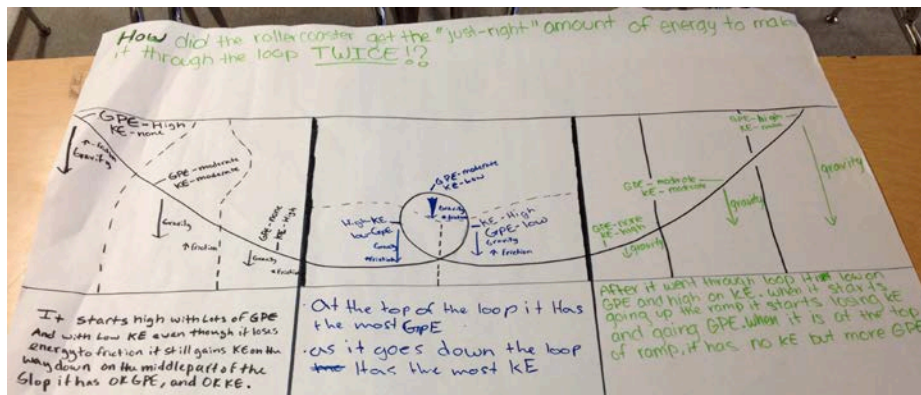 How did the rollercoaster get the "just-right" amount of energy to make
it through the loop TWICE!?
GPE-High
KE-none
↑ friction
Gravity
GPE-moderate
KE-moderate
Gravity
↑ friction
GPE-none
KE-High
Gravity
friction
GPE-moderate
KE-low
Gravity
High KE
low GPE
Gravity
friction
KE-High
GPE-low
Gravity
↑ friction
GPE-none
KE-high
gravity
GPE-moderate
KE-moderate
gravity
GPE-high
KE-none
gravity
It starts high with Lots of GPE
And with low KE even though it loses
energy to friction it still gains KE on the
way down on the middle part of the
Slop it has OK GPE, and OK KE.
· At the top of the loop it Has
the most GPE
· as it goes down the loop
Has the most KE
After it went through loop it low on
GPE and high on KE. when it starts
going up the ramp it starts losing KE
and going GPE. when it is at the top
of ramp, it has no KE but more GPE